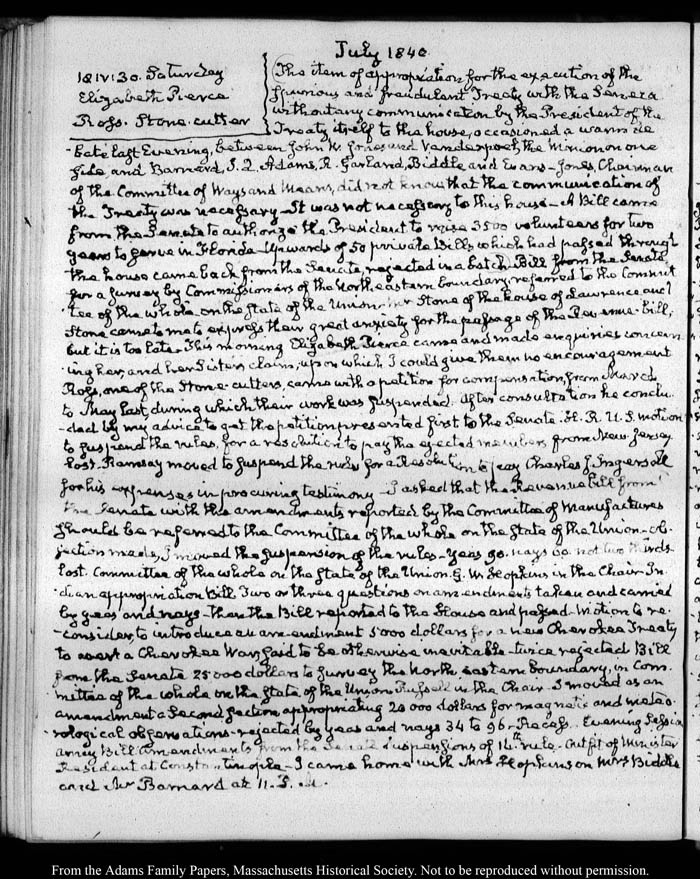 July 1840.
18. IV:30. Saturday
Elizabeth Pierce
Ross. Stone-cutter
The item of appropriation for the execution of the
spurious and fraudulent Treaty with the Seneca
without any communication by the President of the
Treaty itself to the house, occasioned a warm de
-bate last Evening, between John W. Jones and Vanderpoel, the Minion on one
side, and Barnard, J. Q. Adams, R. Garland, Biddle and Evans - Jones, Chairman
of the Committee of Ways and Means, did not know that the communication of
the Treaty was necessary - It was not necessary to this house - A Bill came
from the Senate to authorize the President to raise 3500 volunteers for two
years to serve in Florida - Upwards of 50 private Bills which had passed through
the house came back from the Senate, rejected in a batch. Bill from the Senate
for a survey by Commissioners of the North eastern boundary referred to the Commit
-tee of the whole on the state of the Union. Mr Stone of the house of Lawrence and
Stone came to me to express their great anxiety for the passage of the Revenue bill,
but it is too late. This morning Elizabeth Pierce came and made enquiries concern
-ing her, and her Sisters claim, upon which I could give them no encouragement
Ross, one of the Stone-cutters, came with a petition for compensation, from March
to May last, during which their work was suspended. After consultation he conclu
-ded by my advice to get the petition presented first to the Senate. H. R. U. S. motion
to suspend the rules, for a resolution to pay the ejected members from New-Jersey
lost. Ramsay moved to suspend the rules for a Resolution to pay Charles J. Ingersoll
for his expenses in procuring testimony - I asked that the Revenue bill from
the Senate with the amendments reported by the Committee of Manufactures
should be referred to the Committee of the whole on the state of the Union - ob
-jection made, I moved the suspension of the rules - yeas 90. nays 60. not two thirds
lost. Committee of the whole on the state of the Union. G. W. Hopkins in the Chair - In
-dian appropriation bill. Two or three questions on amendments taken and carried
by yeas and nays - then the Bill reported to the House and passed - Motion to re
-consider, to introduce an amendment 5000 dollars for a new Cherokee Treaty
to avert a Cherokee War, said to be otherwise inevitable - twice rejected Bill
from the Senate 25000 dollars to survey the North eastern boundary, in Com
-mittee of the whole on the state of the Union Russell in the Chair - I moved as an
amendment a second section appropriating 20 000 dollars for magnetic and meteo
-rological observations - rejected by yeas and nays 34 to 96 - Recess. Evening Session
army Bill amendments from the Senate suspensions of 16th rule. Outfit of Minister
Resident at Constantinople - I came home with Mrs Hopkins on Mrs Biddle
and Mr Barnard at 11.
From the Adams Family Papers, Massachusetts Historical Society. Not to be reproduced without permission.